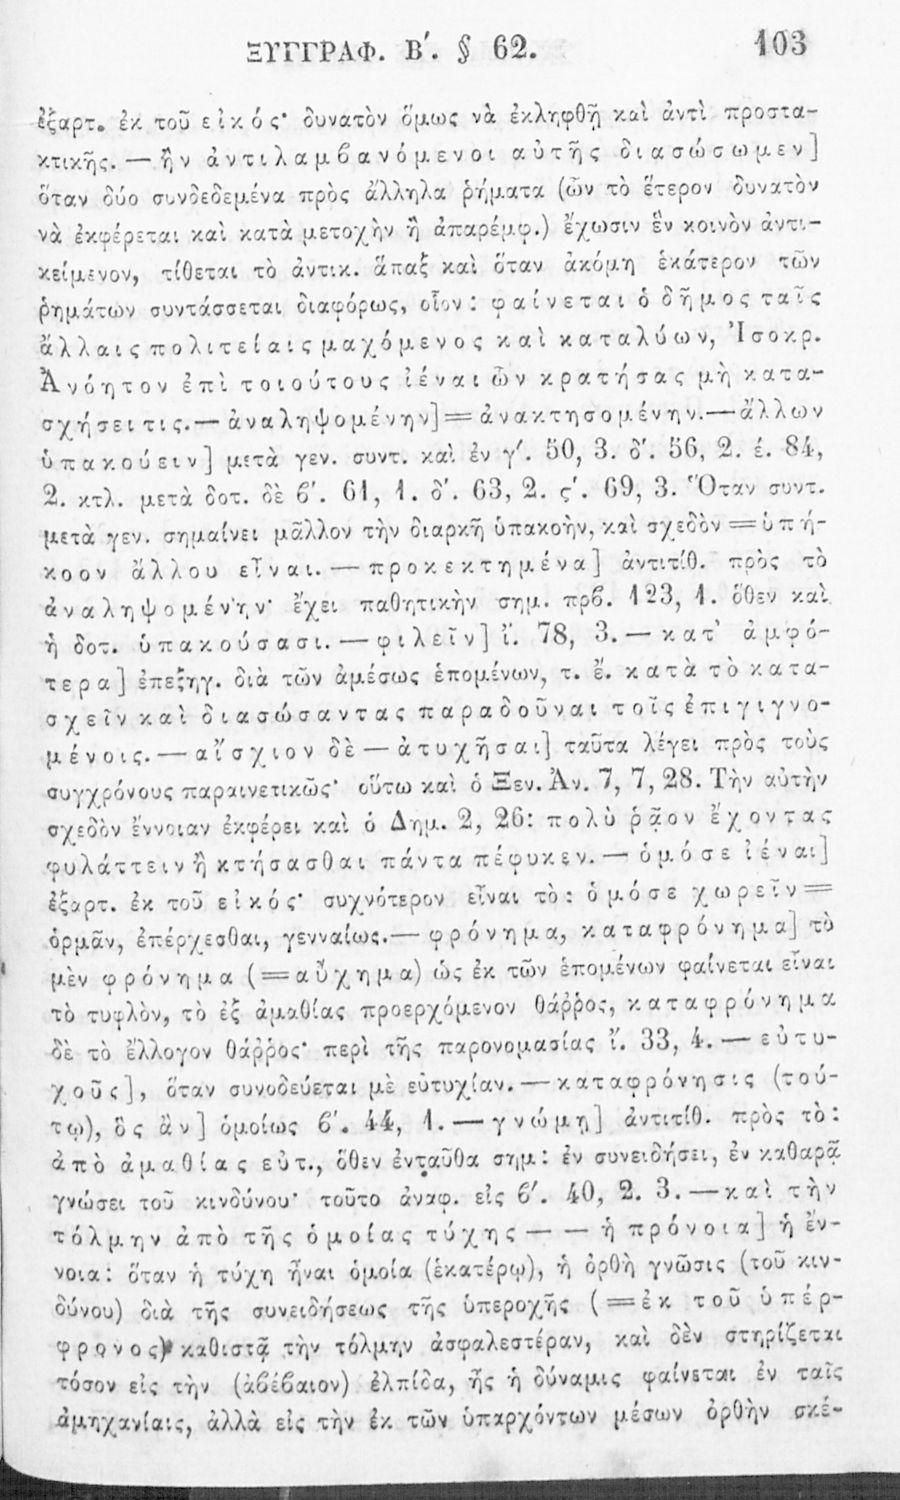 ΞΥΓΓΡΑΦ. Β΄. § 62. 103
ἐξαρτ. ἐκ τοῦ εἰκός· δυνατὸν ὅμως νὰ ἐκληφθῇ καὶ ἀντὶ προστα-
κτικῆς. — ἢν ἀντιλαμβανόμενοι αὐτῆς διασώσωμεν]
ὅταν δύο συνδεδεμένα πρὸς ἄλληλα ῥήματα (ὧν τὸ ἕτερον δυνατὸν
νὰ ἐκφέρεται καὶ κατὰ μετοχὴν ἢ ἀπαρέμφ.) ἔχωσιν ἓν κοινὸν ἀντι-
κείμενον, τίθεται τὸ ἀντικ. ἅπαξ καὶ ὅταν ἀκόμη ἑκάτερον τῶν
ῥημάτων συντάσσεται διαφόρως, οἷον: φαίνεται ὁ δῆμος ταῖς
ἄλλαις πολιτείαις μαχόμενος καὶ καταλύων, Ἰσοκρ.
Ἀνόητον ἐπὶ τοιούτους ἰέναι ὧν κρατήσας μὴ κατα-
σχήσει τις. — ἀναληψομένην] = ἀνακτησομένην. — ἄλλων
ὑπακούειν] μετὰ γεν. συντ. καὶ ἐν γ΄. 50, 3. δ΄. 56, 2. έ. 84,
2. κτλ. μετὰ δοτ. δὲ β΄. 61, 1. δ΄. 63, 2. ς΄. 69, 3. Ὅταν συντ.
μετὰ γεν. σημαίνει μᾶλλον τὴν διαρκῆ ὑπακοὴν, καὶ σχεδὸν = ὑπή-
κοον ἄλλου εἶναι. — προκεκτημένα] ἀντιτίθ. πρὸς τὸ
ἀναληψομένην· ἔχει παθητικὴν σημ. πρβ. 123, 1. ὅθεν καὶ
ἡ δοτ. ὑπακούσασι. — φιλεῖν] ἴ. 78, 3. — κατ' ἀμφό-
τερα] ἐπεξηγ. διὰ τῶν ἀμέσως ἑπομένων, τ. ἔ. κατὰ τὸ κατα-
σχεῖν καὶ διασώσαντας παραδοῦναι τοῖς ἐπιγιγνο-
μένοις. — αἴσχιον δὲ — ἀτυχῆσαι] ταῦτα λέγει πρὸς τοὺς
συγχρόνους παραινετικῶς· οὕτω καὶ ὁ Ξεν. Ἀν. 7, 7, 28. Τὴν αὐτὴν
σχεδὸν ἔννοιαν ἐκφέρει καὶ ὁ Δημ. 2, 26: πολὺ ῥᾷον ἔχοντας
φυλάττειν ἢ κτήσασθαι πάντα πέφυκεν. — ὁμόσε ἰέναι]
ἐξαρτ. ἐκ τοῦ εἰκός· συχνότερον εἶναι τὸ: ὁμόσε χωρεῖν =
ὁρμᾶν, ἐπέρχεσθαι, γενναίως. — φρόνημα, καταφρόνημα] τὸ
μὲν φρόνημα (= αὔχημα) ὡς ἐκ τῶν ἑπομένων φαίνεται εἶναι
τὸ τυφλὸν, τὸ ἐξ ἀμαθίας προερχόμενον θάῤῥος, καταφρόνημα
δὲ τὸ ἔλλογον θάῤῥος· περὶ τῆς παρονομασίας ἴ. 33, 4. — εὐτυ-
χοῦς], ὅταν συνοδεύεται μὲ εὐτυχίαν. — καταφρόνησις (τού-
τῳ), ὃς ἂν] ὁμοίως β΄. 44, 1. — γνώμῃ] ἀντιτίθ. πρὸς τὸ:
ἀπὸ ἀμαθίας εὐτ., ὅθεν ἐνταῦθα σημ: ἐν συνειδήσει, ἐν καθαρᾷ
γνώσει τοῦ κινδύνου· τοῦτο ἀναφ. εἰς β΄. 40, 2. 3. — καὶ τὴν
τόλμην ἀπὸ τῆς ὁμοίας τύχης — — ἡ πρόνοια] ἡ ἔν-
νοια: ὅταν ἡ τύχη ἦναι ὁμοία (ἑκατέρῳ), ἡ ὀρθὴ γνῶσις (τοῦ κιν-
δύνου) διὰ τῆς συνειδήσεως τῆς ὑπεροχῆς (= ἐκ τοῦ ὑπέρ-
φρονος) καθιστᾷ τὴν τόλμην ἀσφαλεστέραν, καὶ δὲν στηρίζεται
τόσον εἰς τὴν (ἀβέβαιον) ἐλπίδα, ἧς ἡ δύναμις φαίνεται ἐν ταῖς
ἀμηχανίαις, ἀλλὰ εἰς τὴν ἐκ τῶν ὑπαρχόντων μέσων ὀρθὴν σκέ-